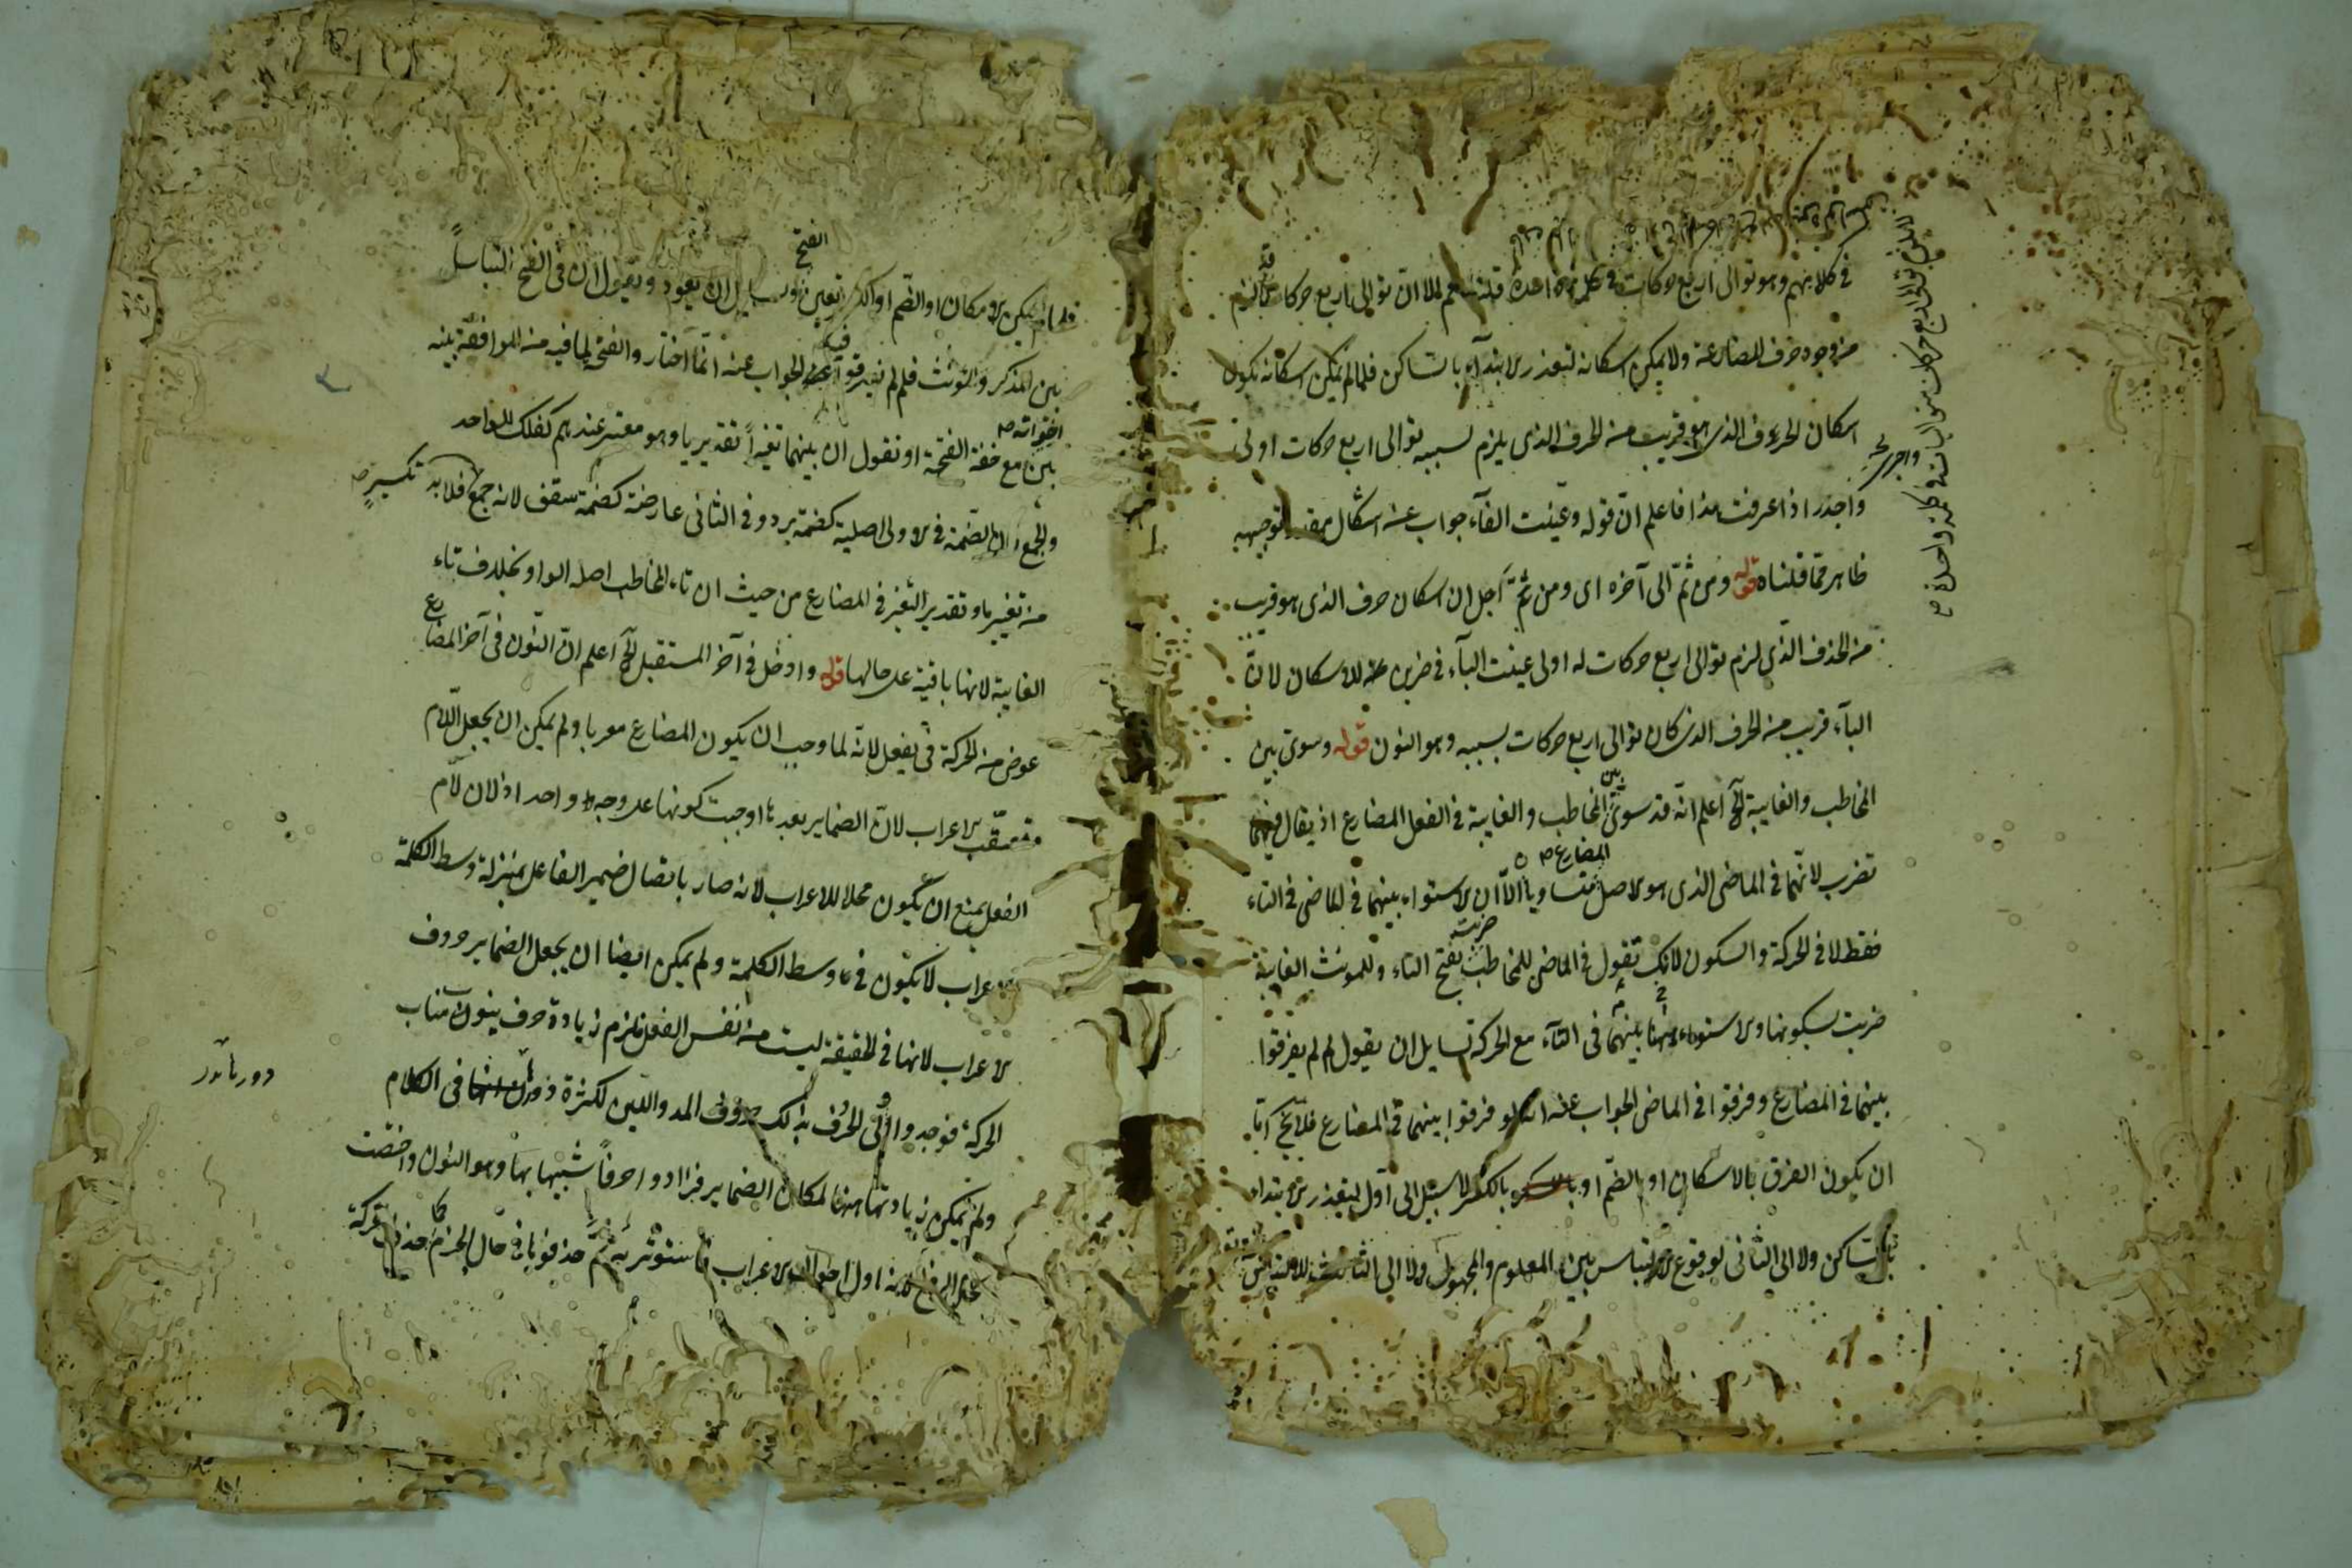 في كلامهم وهو توالى اربع حركات في كلمة واحدة قلنا نعم الا ان توالى اربع حركات
من وجود حرف المضارعة ولا يمكن اسكانه لتعذر الابتداء بالساكن فلما لم يمكن اسكانه يكون
اسكان الحرف الذى هو قريب منه الحرف الذى يلزم بسببه توالى اربع حركات اولى
واجدر اذا عرفت هذا فاعلم ان قوله وعينت الفاء جواب عن اشكال مقدر توجيهه
ظاهر مما قلناه قوله ومن ثم الى آخره اى ومن ثم اجل ان اسكان حرف الذى هو قريب
من الحرف الذى لزم توالى اربع حركات له اولى عينت الباء في ضربن للاسكان لان
الباء قريب من الحرف الذى كان توالى اربع حركات بسببه وهو النون قوله وسوى بين
المخاطب والغايبة الخ اعلم انه قد سوى بين المخاطب والغايبة في الفعل المضارع اذ يقال فيهما
تضرب لانهما في الماضى الذى هو الاصل المضارع متساويا الا ان الاستواء بينهما في الماضى في التاء
فقط لا في الحركة والسكون لانك تقول في الماضى للمخاطب ضربت بفتح التاء وللمونث الغايبة
ضربت بسكونها والاستواء ههنا بينهما في التاء مع الحركة لسايل ان يقول لم لم يفرقوا
بينهما في المضارع وفرقوا في الماضى الجواب عنه انه لو فرقوا بينهما في المضارع فلا يخ اما
ان يكون الفرق بالاسكان او بالضم او بالكسر لا سبيل الى اول لتعذر الابتداء
بالساكن ولا الى الثانى لوقوع الالتباس بين المعلوم والمجهول ولا الى الثالث للالتباس
يمكن الاسكان او الضم او الكسر تعين الفتح ولسايل ان يعود ويقول ان في الفتح التباساً
بين المذكر والمونث فلم لم يفرقوا فيه الجواب عنه انما اختاروا الفتح لما فيه من الموافقة بينه
بين اخواته مع خفة الفتحة او نقول ان بينهما تغيراً تقديريا وهو معتبر عندهم كفلك الواحد
والجمع الضمة في الاولى اصلية كضمة برد وفي الثانى عارضة كضمة سقف لانه جمع تكسير فلا بد
من تغيير ما وتقدير التغير في المضارع من حيث ان تاء المخاطب اصله الواو بخلاف تاء
الغايبة لانها باقية على حالها قوله وادخل في آخر المستقبل الخ اعلم ان النون في آخر المضارع
عوض من الحركة في يفعل لانه لما وجب ان يكون المضارع معربا ولم يمكن ان يجعل اللام
معتقب الاعراب لان الضماير بعدها اوجبت كونها على وجه واحد اذ لان لام
الفعل يمتنع ان يكون محلا للاعراب لانه صار باتصال ضمير الفاعل بمنزلة وسط الكلمة
الاعراب لا يكون في وسط الكلمة ولم يمكن ايضا ان يجعل الضماير حروف
الاعراب لانها في الحقيقة ليست من نفس الفعل فلزم زيادة حرف ينوب مناب
الحركة فوجدوا اولى الحرف بذلك حروف المد واللين لكثرة في الكلام
ولم يمكن زيادتها ههنا لمكان الضماير فزادوا حرفاً شبيها بها وهو النون واختصت
بحال الرفع لانه اول احوال الاعراب فاستوثر به ثم حذفوها في حال الجزم كما حذف حركة